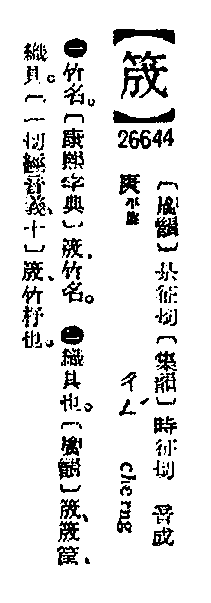 【筬】
26644
〔廣韻〕是征切〔集韻〕時征切 音成
庚平聲
ㄔㄥˊ cherng
㊀竹名。〔康熙字典〕筬、竹名。㊁織具也。〔廣韻〕筬、筬筐、
織具。〔一切經音義、十〕筬、竹杼也。